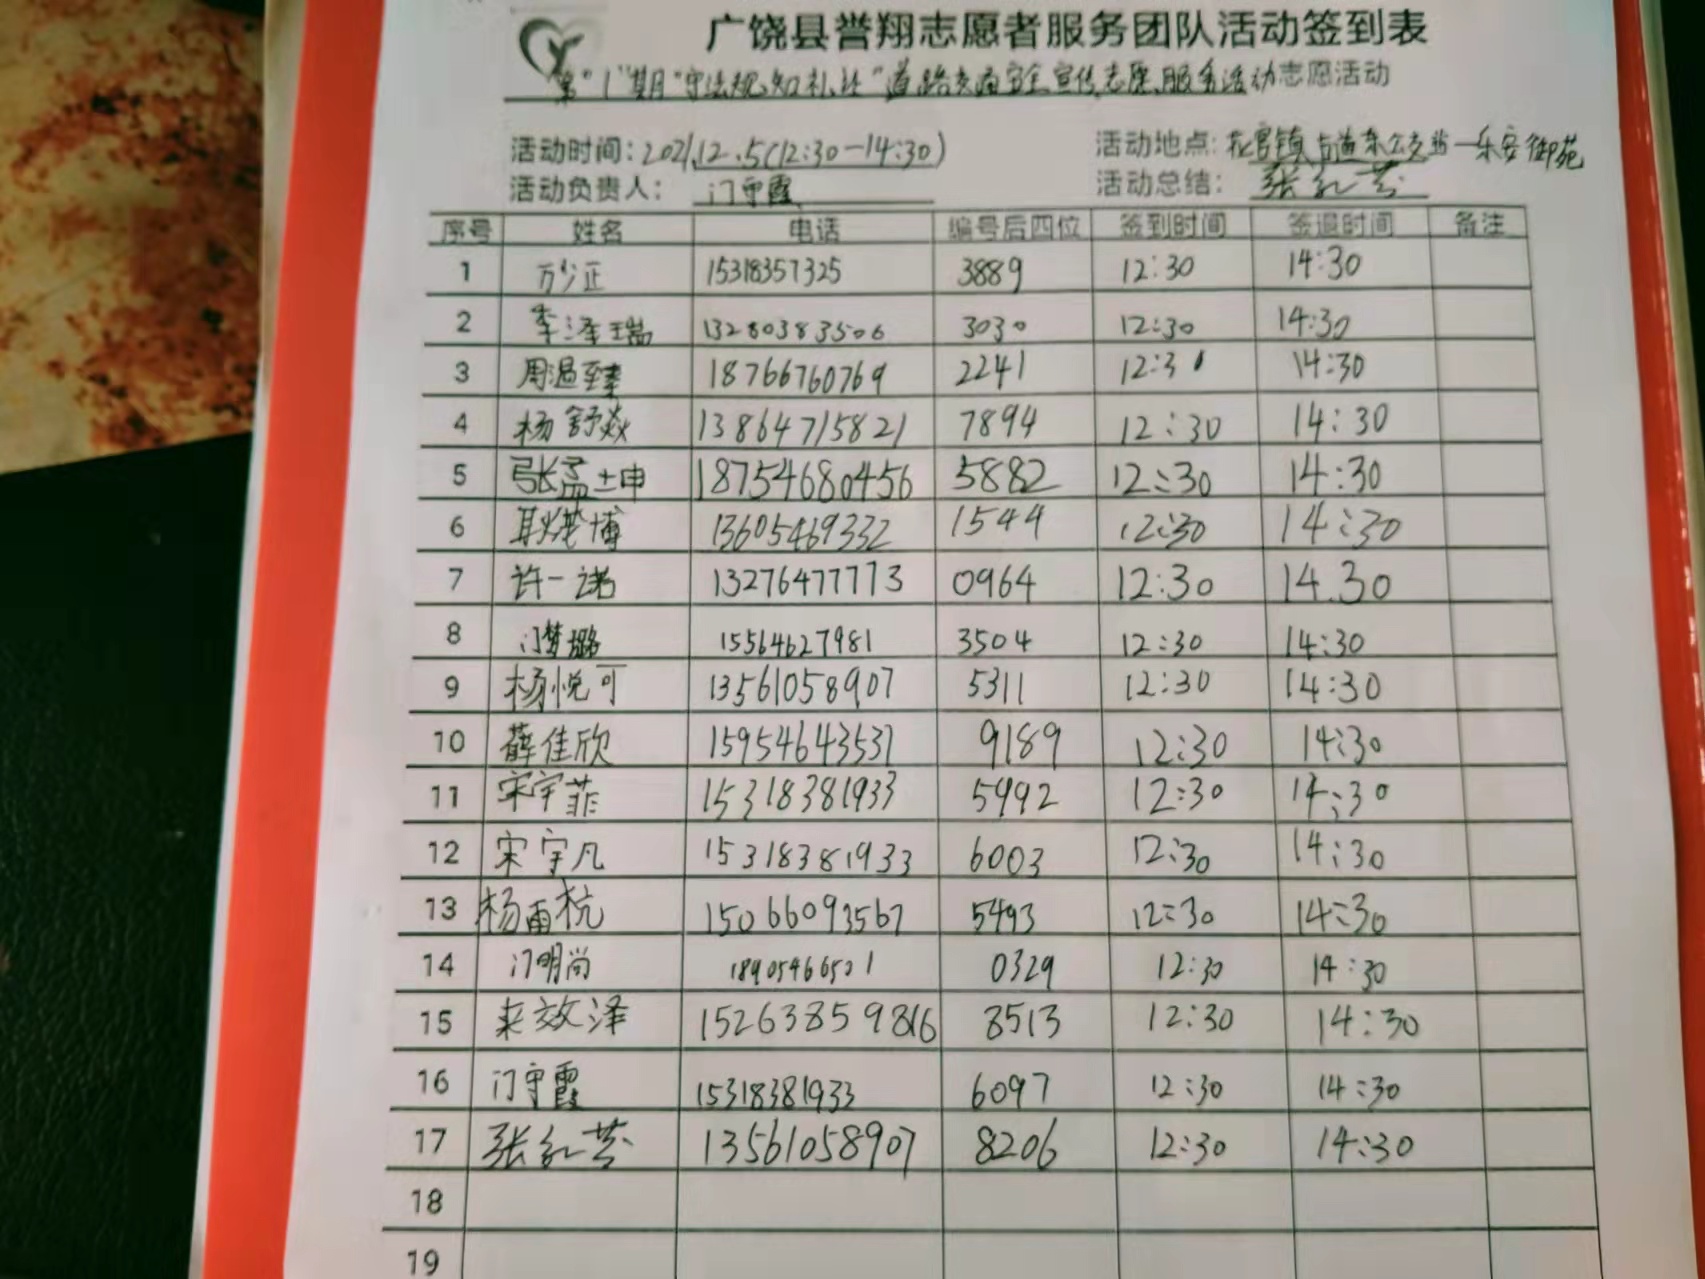 广饶县誉翔志愿者服务团队活动签到表
第"1"期"守法规知礼让"道路交通安全宣传志愿服务活动志愿活动
活动时间：2021.12.5(12:30-14:30) 活动地点：花官镇 公交站—乐安御苑
活动负责人：门守霞 活动总结：张红芸
序号 姓名 电话 编号后四位 签到时间 签退时间 备注
1 万少正 15318357325 3889 12:30 14:30
2 李泽瑞 13280383506 3030 12:30 14:30
3 周温臻 18766760769 2241 12:31 14:30
4 杨舒焱 13864715821 7894 12:30 14:30
5 张孟坤 18754680456 5882 12:30 14:30
6 耿 博 13605469332 1544 12:30 14:30
7 许一诺 13276477773 0964 12:30 14.30
8 门梦璐 15564627981 3504 12:30 14:30
9 杨悦可 13561058907 5311 12:30 14:30
10 薛佳欣 15954643537 9189 12:30 14:30
11 宋宇菲 15318381933 5992 12:30 14:30
12 宋宇凡 15318381933 6003 12:30 14:30
13 杨雨杭 15066093567 5493 12:30 14:30
14 门明尚 18905466521 0329 12:30 14:30
15 来效泽 15263859816 8513 12:30 14:30
16 门守霞 15318381933 6097 12:30 14:30
17 张红芸 13561058907 8206 12:30 14:30
18
19